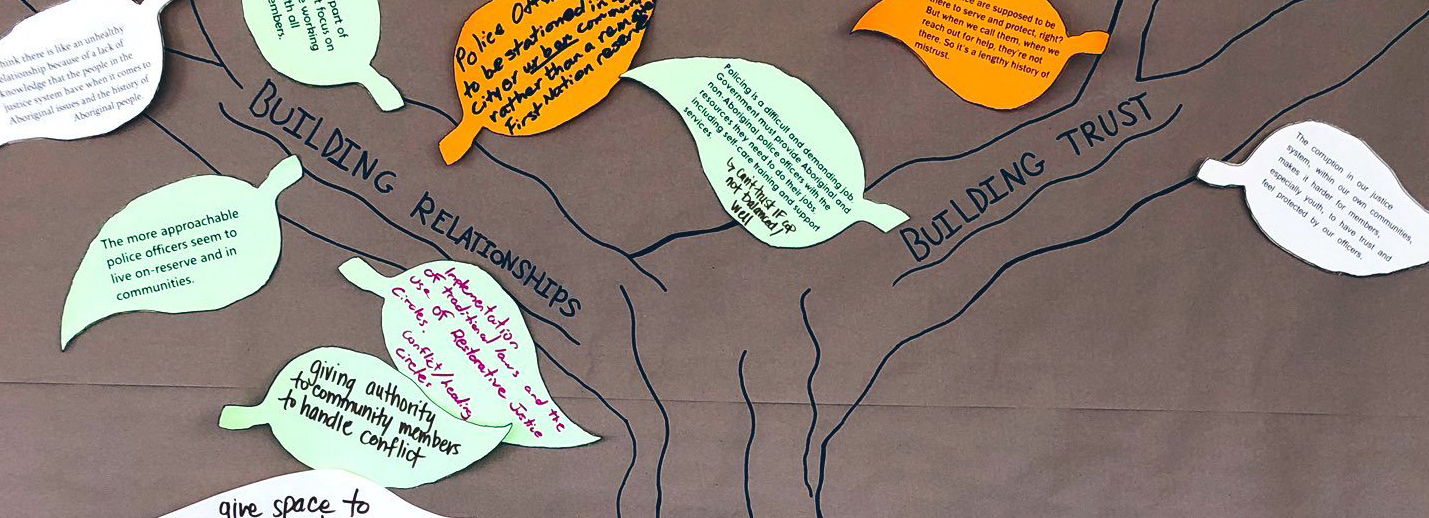 think there is like an unhealthy
relationship because of a lack of
knowledge that the people in the
justice system have when it comes to
Aboriginal issues and the history of
Aboriginal people.
part of
focus on
working
with all
members.
Police
to be stationed in
city or urban
rather than a
First Nation reserve
Policing is a difficult and demanding job.
Government must provide Aboriginal and
non-Aboriginal police officers with the
resources they need to do their jobs,
including self-care training and support
services.
↳ Can't trust if cop
not balanced/
well
are supposed to be
there to serve and protect, right?
But when we call them, when we
reach out for help, they're not
there. So it's a lengthy history of
mistrust.
BUILDING RELATIONSHIPS
BUILDING TRUST
The corruption in our justice
system, within our own communities,
makes it harder for members,
especially youth, to have trust and
feel protected by our officers.
The more approachable
police officers seem to
live on-reserve and in
communities.
Implementation
of traditional laws and the
use of Restorative Justice
Circles. Conflict/healing
circles
giving authority
to community members
to handle conflict
give space to